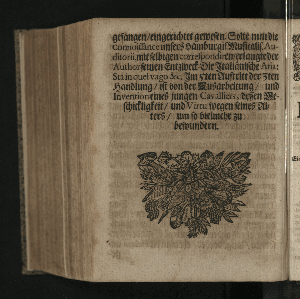 gesangen/ eingerichtet gewesen. Solte nun die
Connoissance unsers Hamburgis. Musicalis. Au-
ditorii, mit selbigen correspondiren/ erlanget der
Author seinen Entzweck. Die Italiänische Aria:
Sti in quel vago &c. Im 5ten Aufftritt der 3ten
Handlung/ ist von der Ausarbeitung/ und
Invention eines jungen Cavalliers, dessen Ge-
schickligkeit/ und Vertu wegen seines Al-
ters/ um so vielmehr zu
bewundern.